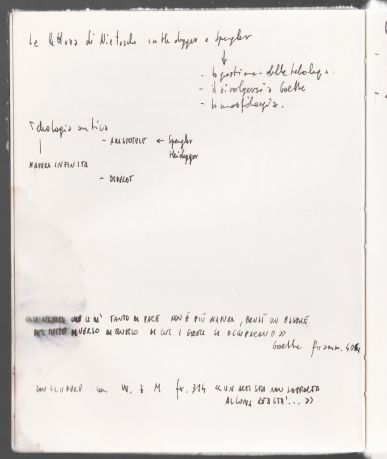 La lettura di Nietzsche in Heidegger e Spengler
- la questione della tecnologia.
- il rivolgersi a Goethe
- la morfologia.
Tecnologia antica
- ARISTOTELE ← Spengler
Heidegger
NATURA INFINITA
- DIDEROT
TANTO DA FARE NON È PIÙ NATURA, BENSÌ UN ESSERE
DEL TUTTO DIVERSO DA QUELLO DI CUI I GRECI SI OCCUPAVANO »
Goethe framm.
CONCLUDERE con W. z. M fr. 314 « UN ARTISTA NON SOPPORTA
ALCUNA REALTÀ... »